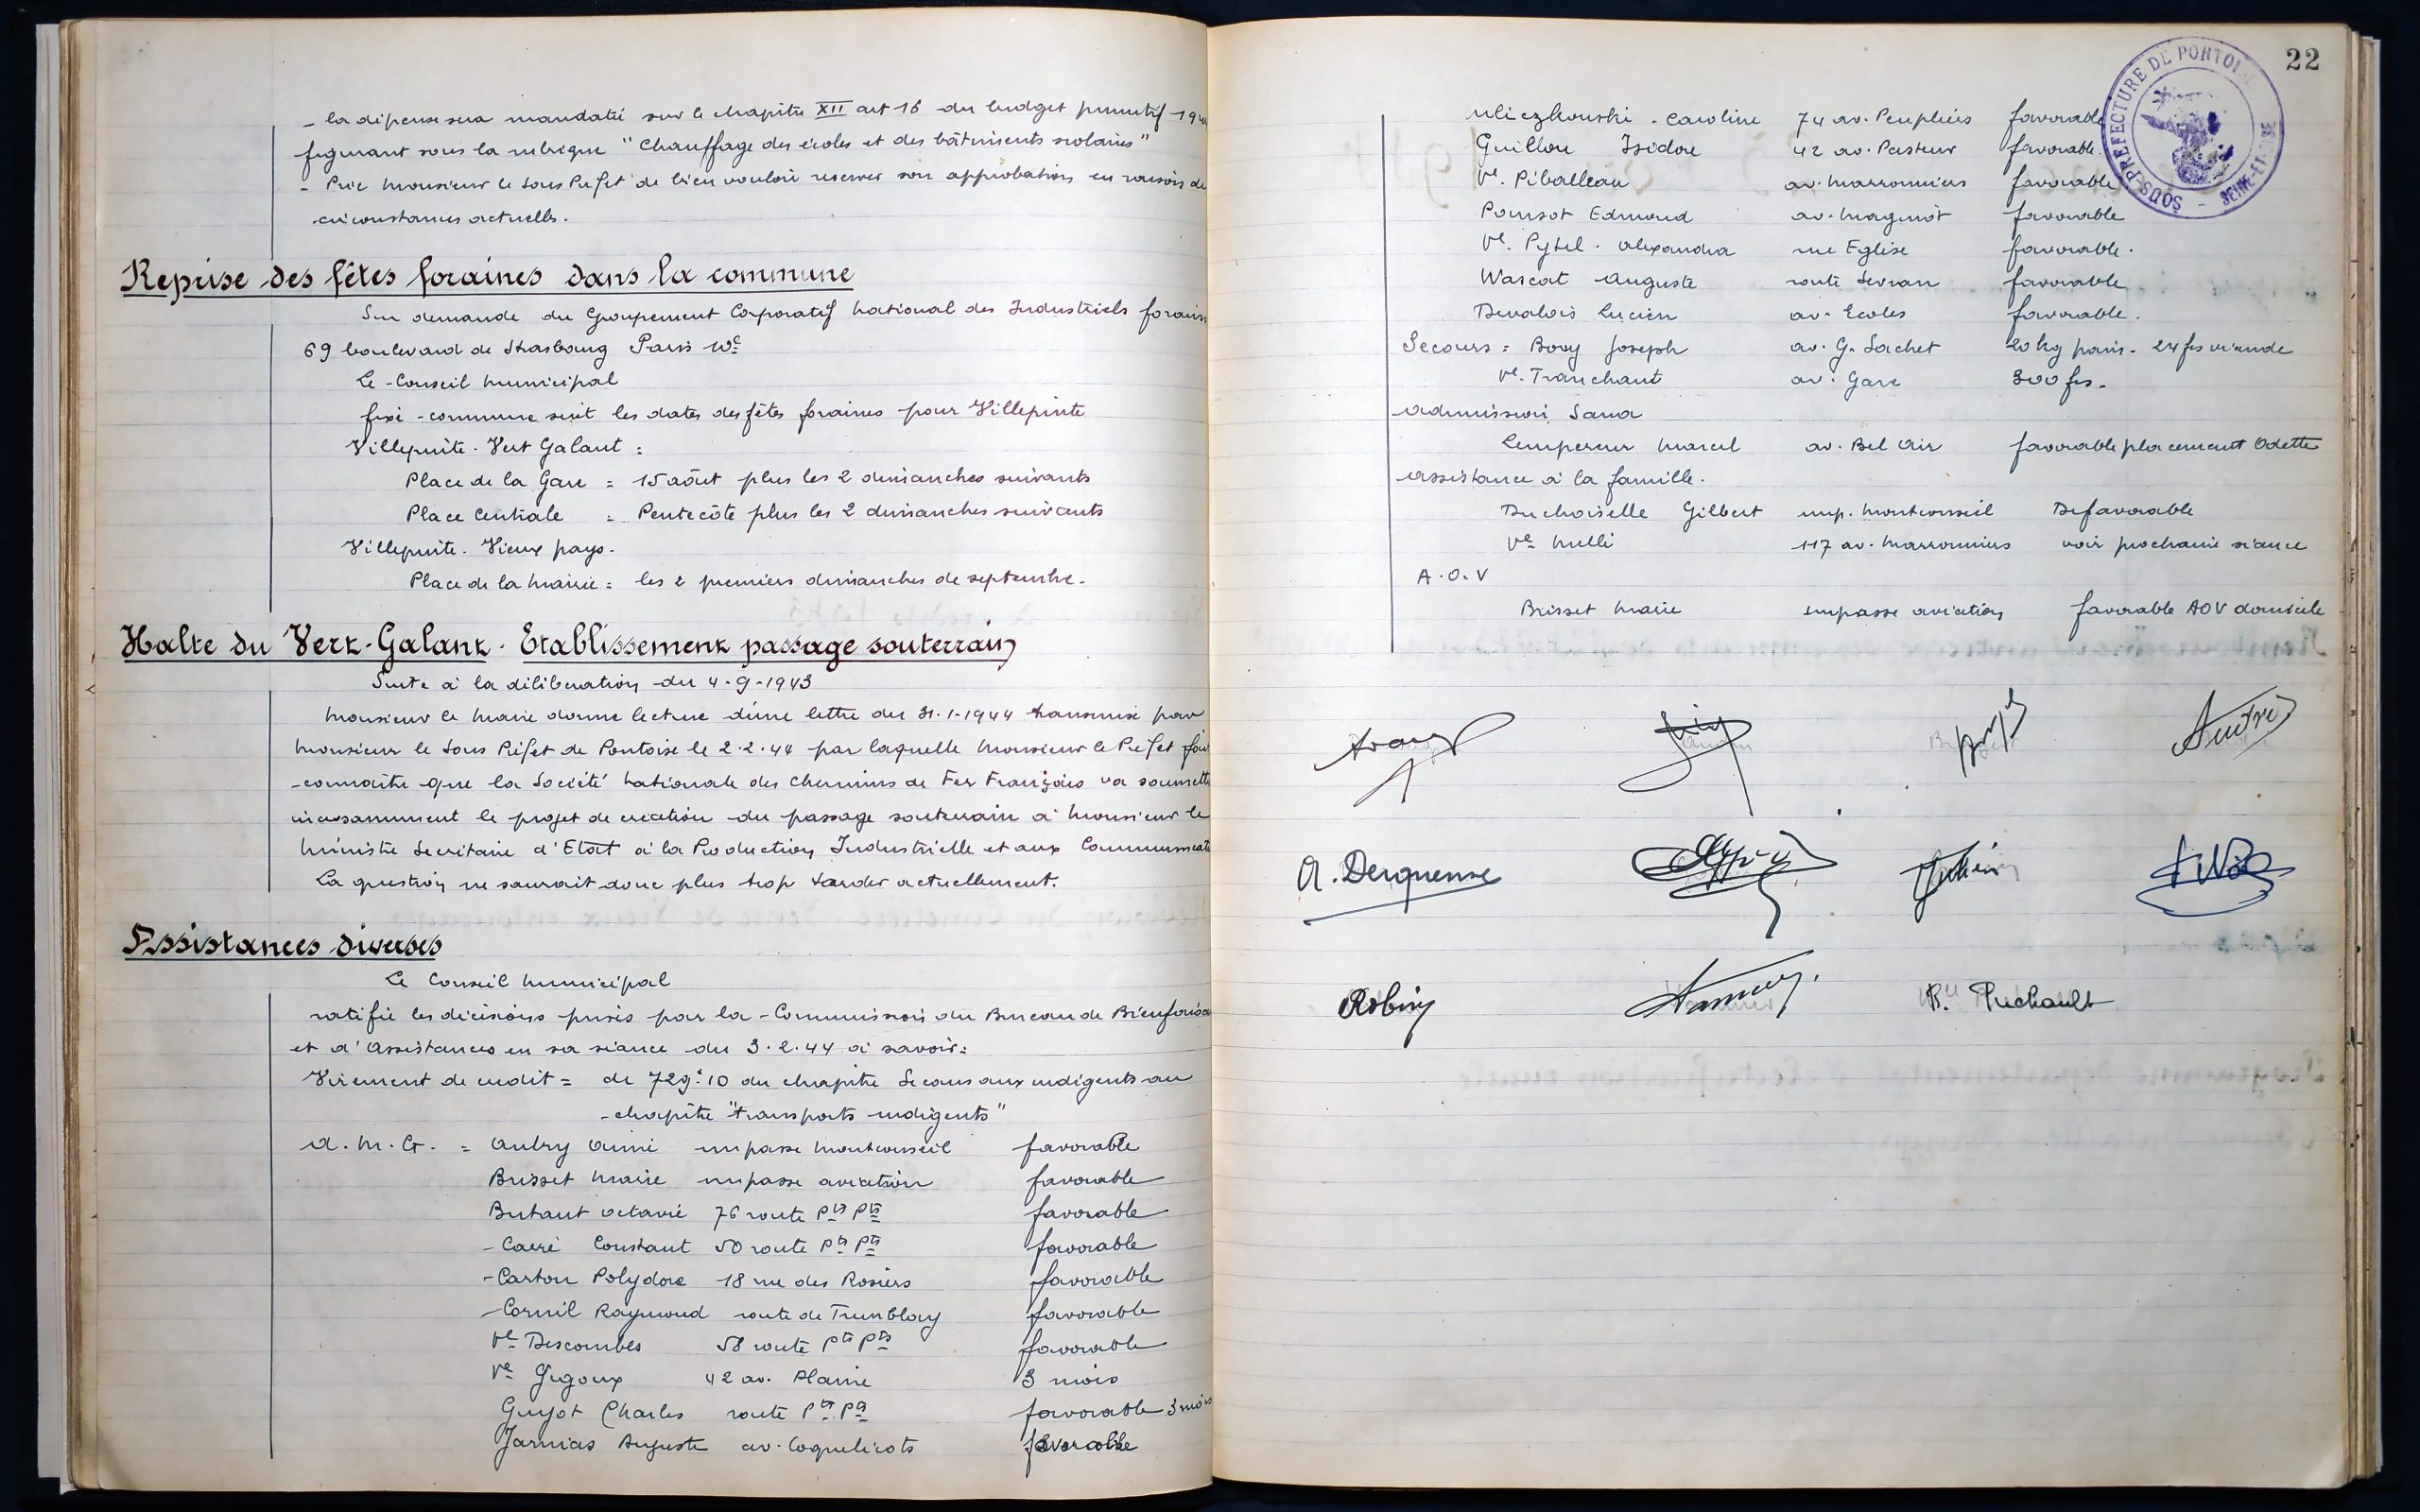 - la dépense sera mandatée sur le chapitre XII art 16 du budget primitif 194
figurant sous la rubrique "Chauffage des écoles et des bâtiments scolaires"
- Prie Monsieur le Sous Préfet de bien vouloir réserver son approbation en raison de
circonstances actuelles.
Reprise des fêtes foraines dans la commune
Sur demande du Groupement Corporatif National des Industriels forains
69 boulevard de Strasbourg Paris
Le Conseil Municipal
fixe comme suit les dates des fêtes foraines pour Villepinte
Villepinte. Vert Galant :
Place de la Gare = 15 août plus les 2 dimanches suivants
Place Centrale = Pentecôte plus les 2 dimanches suivants
Villepinte. Vieux pays.
Place de la Mairie = les 2 premiers dimanches de septembre.
Halte du Vert-Galant. Etablissement passage souterrain
Suite à la délibération du 4-9-1943
Monsieur le Maire donne lecture d'une lettre du 31-1-1944 transmise par
Monsieur le Sous Préfet de Pontoise le 2.2.44 par laquelle Monsieur le Préfet fai
connaître que la Société Nationale des Chemins de Fer Français va soumett
incessamment le projet de création du passage souterrain à Monsieur le
Ministre Secrétaire d'Etat à la Production Industrielle et aux Communicat
La question ne saurait donc plus trop tarder actuellement.
Assistances diverses
Le Conseil Municipal
ratifie les décisions prises par la Commission du Bureau de Bienfaisa
et d'Assistances en sa séance du 3.2.44 à savoir :
Virement de crédit = de 729f10 du chapitre Secours aux indigents au
chapitre "transports indigents"
A.M.G. = Aubry Aimé impasse Montconseil favorable
Brisset Marie impasse aviation favorable
Butaut Octavie 76 route Pts Pts favorable
Carré Constant 50 route Pts Pts favorable
Carton Polydore 18 rue des Rosiers favorable
Cornil Raymond route de Tremblay favorable
Ve Descombes 58 route Pts Pts favorable
Ve Gigoux 42 av. Plaine 3 mois
Guyot Charles route Pts Pts favorable 3 mois
Jarnias Auguste av. Coquelicots favorable
22
SOUS-PRÉFECTURE DE PONTOISE
SEINE-ET-OISE
Caroline 74 av. Peupliers favorable
Guillou Isidore 42 av. Pasteur favorable.
Ve. Piballeau av. Marronniers favorable
Ponsot Edmond av. Maginot favorable
Ve. Pytel. Alexandra rue Eglise favorable.
Wascat Auguste route Sevran favorable
Devalois Lucien av. Ecoles favorable.
Secours = Bovy Joseph av. G. Sachet 20 kg pain. 24 frs viande
Ve. Tranchant av. Gare 300 frs.
Admission Sana
Lempereur Marcel av. Bel Air favorable placement Odette
Assistance à la famille.
Duchoiselle Gilbert imp. Montconseil Défavorable
Ve Melli 117 av. Marronniers voir prochaine séance
A.O.V
Brisset Marie impasse aviation favorable AOV domicile
A. Derquenne
Robin
Puchault